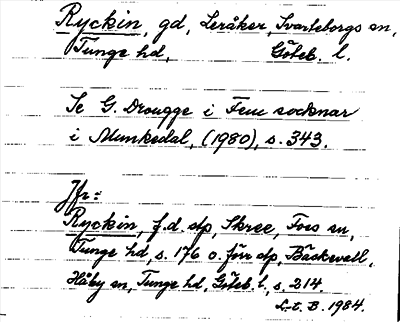 Ryckin, gd, Leråker, Svarteborgs sn,
Tunge hd, Göteb. l.
Se G. Drougge i Fem socknar
i Munkedal, (1980), s. 343.
Jfr:
Ryckin, f.d. dp, Skree, Foss sn,
Tunge hd, s. 176 o. förr dp, Bäckevall,
Håby sn, Tunge hd, Göteb. l., s. 214.
L-t. B. 1984.